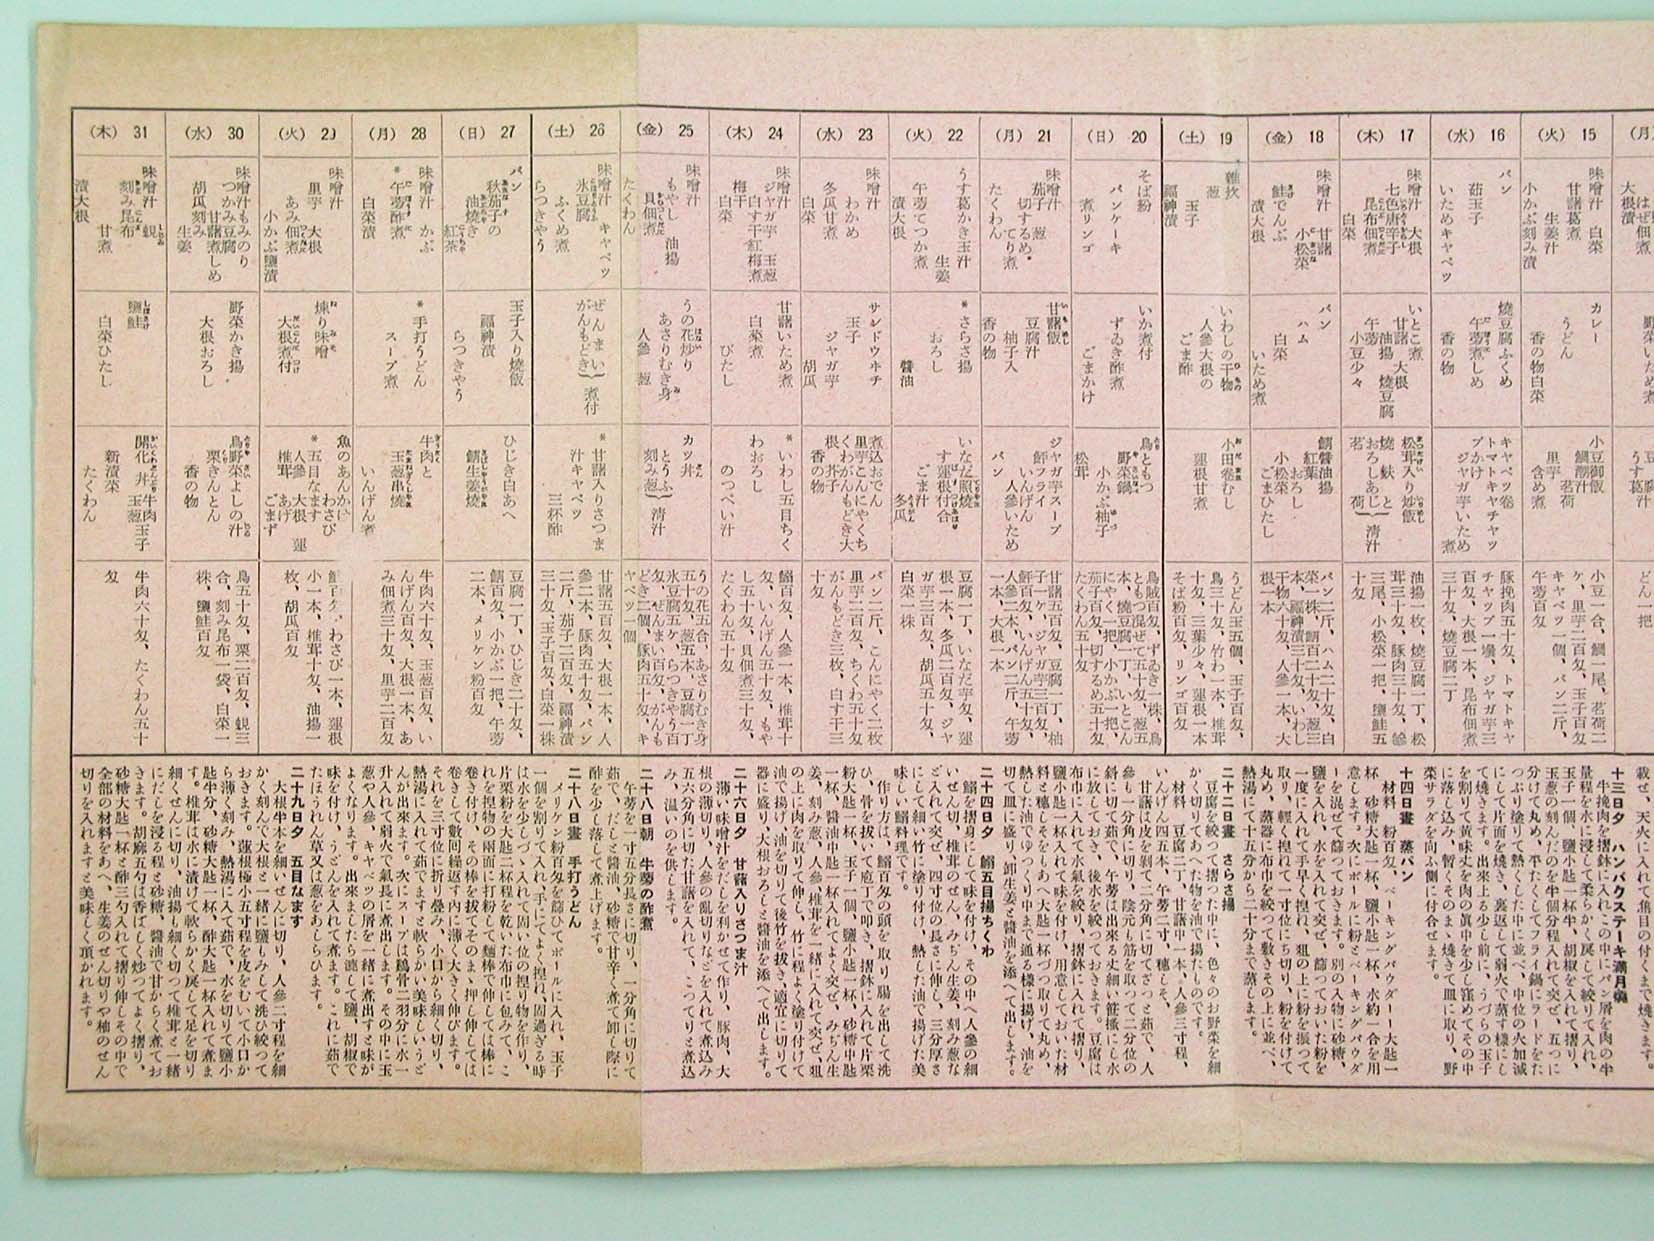 (月)
大根漬
15 (火)
味噌汁 白菜
甘諸葛煮
生姜汁
小かぶ刻み漬
カレー
うどん
香の物白菜
小豆御飯
鯛潮汁
茗荷
里芋 含め煮
小豆一合、鯛一尾、茗荷二
ケ、里芋二百匁、玉子百匁
キャベツ一個、パン二斤、
午蒡百匁
16 (水)
パン
茹玉子
いためキャベツ
燒豆腐ふくめ
午蒡煮しめ
香の物
キャベツ卷
トマトキャチャツ
プかけ
ジャガ芋いため
煮
豚挽肉五十匁、トマトキャ
チャップ一壜、ジャガ芋三
百匁、大根一本、昆布佃煮
三十匁、燒豆腐二丁
17 (木)
味噌汁 大根
七色唐辛子
昆布佃煮
白菜
いとこ煮
甘諸 大根
油揚 燒豆腐
午蒡
小豆少々
松茸入り炒飯
燒麸と
おろしあじ
茗荷
清汁
油揚一枚、燒豆腐一丁、松
茸三十匁、豚肉三十匁、鰺
三尾、小松菜一把、鹽鮭五
十匁
18 (金)
味噌汁 甘諸
小松菜
鮭でんぶ
漬大根
パン
ハム
白菜
いため煮
鯖醬油揚
紅葉
おろし
小松菜
ごまひたし
パン二斤、ハム二十匁、白
菜一株、鯖百二十匁、葱三
本、福神漬三十匁、いわし
干物六十匁、人參一本、大
根一本
19 (土)
雜炊
葱
玉子
福神漬
いわしの干物
人參大根の
ごま酢
小田卷むし
蓮根甘煮
うどん玉五個、玉子百匁、
鳥三十匁、竹わ一本、椎茸
十匁、三葉少々、蓮根一本
そば粉百匁、リンゴ百匁
20 (日)
そば粉
パンケーキ
煮リンゴ
いか煮付
ずゐき酢煮
ごまかけ
鳥ともつ
野菜鍋
小かぶ柚子
松茸
鳥賊百匁、ずゐき一株、鳥
ともつ混ぜて五十匁、葱五
本、燒豆腐一丁、いとこん
にやく一把、小かぶ一把、
茄子百匁、切するめ五十匁
たくわん五十匁
21 (月)
味噌汁
茄子 葱
切するめ
てり煮
たくわん
甘諸飯
豆腐汁
柚子入
香の物
ジャガ芋スープ
鮃フライ
いんげん
人參いため
パン
甘諸五百匁、豆腐一丁、柚
子一ケ、ジャガ芋三百匁、
鮃百匁、いんげん五十匁、
人參二本、パン二斤、午蒡
一本、大根一本
22 (火)
うす葛かき玉汁
生姜
午蒡てつか煮
漬大根
さらさ揚
おろし
醬油
いなだ照燒
す蓮根付合
ごま汁
冬瓜
豆腐一丁、いなだ百匁、蓮
根一本、冬瓜二百匁、ジャ
ガ芋三百匁、胡瓜五十匁、
白菜一株
23 (水)
味噌汁
わかめ
冬瓜甘煮
白菜
サンドウヰチ
玉子
ジャガ芋
胡瓜
煮込おでん
里芋こんにやくち
くわがんもどき大
根 芥子
香の物
パン二斤、こんにやく二枚
里芋二百匁、ちくわ五十匁
がんもどき三枚、白す干三
十匁
24 (木)
味噌汁
ジャガ芋 玉葱
白す干紅梅煮
梅干
白菜
甘諸いため煮
白菜煮
びたし
いわし五目ちく
わおろし
のつぺい汁
鰯百匁、人參一本、椎茸十
匁、いんげん五十匁、もや
し五十匁、貝佃煮三十匁、
たくわん五十匁
25 (金)
味噌汁
もやし 油揚
貝佃煮
たくわん
うの花炒り
あさりむき身
人參 葱
カツ丼
とうふ
刻み葱
清汁
うの花五合、あさりむき身
五十匁、葱五本、豆腐一丁
氷豆腐五ケ、らつきやう百
匁、ぜんまい百匁、がんも
どき二個、豚肉五十匁、キ
ャベツ一個
26 (土)
味噌汁 キャベツ
氷豆腐
ふくめ煮
らつきやう
ぜんまい
がんもどき
煮付
甘諸入りさつま
汁 キャベツ
三杯酢
甘諸五百匁、大根一本、人
參二本、豚肉五十匁、パン
二斤、茄子二百匁、福神漬
三十匁、玉子百匁、白菜一株
27 (日)
パン
秋茄子の
油燒き
紅茶
玉子入り燒飯
福神漬
らつきやう
ひじき白あへ
鯖生姜燒
豆腐一丁、ひじき二十匁、
鯖百匁、小かぶ一把、午蒡
二本、メリケン粉百匁
28 (月)
味噌汁 かぶ
午蒡酢煮
白菜漬
手打うどん
スープ煮
牛肉と
玉葱串燒
いんげん煮
牛肉六十匁、玉葱百匁、い
んげん百匁、大根一本、あ
み佃煮三十匁、里芋二百匁
29 (火)
味噌汁
里芋 大根
あみ佃煮
小かぶ鹽漬
煉り味噌
大根煮付
魚のあんかけ
わさび
五目なます
人參 大根 蓮
椎茸 あげ
ごまず
鮭百匁、わさび一本、蓮根
小一本、椎茸十匁、油揚一
枚、胡瓜百匁
30 (水)
味噌汁もみのり
つかみ豆腐
甘諸煮しめ
胡瓜刻み
生姜
野菜かき揚
大根おろし
鳥野菜よしの汁
栗きんとん
香の物
鳥五十匁、栗二百匁、蜆三
合、刻み昆布一袋、白菜一
株、鹽鮭百匁
31 (木)
味噌汁 蜆
刻み昆布
甘煮
漬大根
鹽鮭
白菜ひたし
開化丼 牛肉
玉葱 玉子
新漬菜
たくわん
牛肉六十匁、たくわん五十
匁
載せ、天火に入れて焦目の付くまで燒きます。
十三日夕 ハンバクステーキ滿月燒
牛挽肉を摺鉢に入れこの中にパン屑を肉の半
量程を水に浸して柔らかく戻して絞りて入れ、
玉子一個、鹽小匙一杯半、胡椒を入れて摺り、
玉葱の刻んだのを半個分程入れて交ぜ、五つに
分けて丸め、平たくしてフライ鍋にラードをた
つぷり塗りて熱くした中に並べ、中位の火加減
にして片面を燒き、裏返して弱火で蒸す樣にし
て燒きます。出來上る少し前に、うづらの玉子
を割りて黃味丈を肉の眞中を少し窪めてその中
に落し込み、暫くそのまゝ燒きて皿に取り、野
菜サラダを向ふ側に付合せます。
十四日晝 蒸パン
材料 粉百匁、ベーキングパウダー大匙一
杯、砂糖大匙一杯、鹽小匙一杯、水約一合を用
意します。次にボールに粉とベーキングパウダ
ーを混ぜて篩つておきます。別の入物に砂糖、
鹽を入れ、水を入れて交ぜ、篩つておいた粉を
一度に入れて手早く揑ね、俎の上に粉を振つて
取り、輕く揑ねて一寸位にちぎり、粉を付けて
丸め、蒸器に布巾を絞つて敷きその上に並べ、
熱湯にて十五分から二十分まで蒸します。
二十二日晝 さらさ揚
豆腐を絞つて摺つた中に、色々のお野菜を細
かく切りてあへた物を油で揚たものです。
材料 豆腐二丁、甘諸中一本、人參三寸程、
いんげん四五本、午蒡二寸、穗しそ、
甘諸は皮を剝て二分角に切てさつと茹で、人
參も一分角に切り、陰元も筋を取つて二分位の
斜に切て茹で、午蒡は出來る丈細い笹搔にし水
に放しておき、後水を絞つておきます。豆腐は
布巾に入れて水氣を絞り、摺鉢に入れて摺り、
鹽小匙一杯を入れて味を付け、用意しておいた材
料と穗しそをもあへ大匙一杯づつ取りて丸め、
熱した油でゆつくり中まで通る樣に揚げ、油を
切つて皿に盛り、卸生姜と醬油を添へて出します。
二十四日夕 鰯五目揚ちくわ
鰯を摺身にして味を付け、その中へ人參の細
いせん切、椎茸のせん、みぢん生姜、刻み葱な
ど入れて交ぜ、四寸位の長さに伸し、三分厚さ
にして細い竹に塗り付け、熱した油で揚げた美
味しい鰯料理です。
作り方は、鰯百匁の頭を取り腸を出して洗
ひ、骨を拔いて庖丁で叩き、摺鉢に入れて片栗
粉大匙一杯、玉子一個、鹽小匙一杯、砂糖中匙
一杯、醬油中匙一杯を入れてよく交ぜ、みぢん生
姜、刻み葱、人參、椎茸を一緒に入れて交ぜ、俎
の上に肉を取りて伸し、竹に程よく塗り付けて
油で揚げ、油を切りて後竹を拔き、適宜に切りて
器に盛り、大根おろしと醬油を添へて出します。
二十六日夕 甘諸入りさつま汁
薄い味噌汁をだしを利かせて作り、豚肉、大
根の薄切り、人參の亂切りなどを入れて煮込み
五六分角に切た甘諸を入れて、こつてりと煮込
み、温いのを供します。
二十八日朝 牛蒡の酢煮
午蒡を一寸五分長さに切り、一分角に切りて
茹で、だしと醬油、砂糖で甘辛く煮て卸し際に
酢を少し落して煮上げます。
二十八日晝 手打うどん
メリケン粉百匁を篩ひてボールに入れ、玉子
一個を割りて入れ、手にてよく揑ね、固過ぎる時
は水を少しづゝ入れて固い位の揑り物を作り、
片栗粉を大匙二杯程を乾いた布巾に包みて、こ
れを揑物の兩面に打粉して麺棒で伸しては棒に
卷き付け、その棒を拔てそのまゝ押し伸しては
卷きして數回繰返す內に薄く大きく伸びます。
それを三寸位に折り疊み、小口から細く切り、
熱湯に入れて茹でますと軟らかい美味しいうど
んが出來ます。次にスープは鷄骨二羽分に水一
升入れて弱火で氣長に煮出します。その中に玉
葱や人參、キャベツの屑を一緒に煮出すと味が
よくなります。出來ましたら漉して鹽、胡椒で
味を付け、うどんを入れて煮ます。これに茹で
たほうれん草又は葱をあしらひます。
二十九日夕 五目なます
大根半本を細いせんに切り、人參二寸程を細
かく刻んで大根と一緒に鹽もみして洗ひ絞つて
おきます。蓮根極小五寸程を皮をむいて小口か
ら薄く刻み、熱湯に入て茹で、水を切りて鹽小
匙半分、砂糖大匙一杯、酢大匙一杯入れて煮ま
す。椎茸は水に漬けて軟らかく戻して足を切り
細くせんに切り、油揚も細く切つて椎茸と一緒
にだしを浸る程と砂糖、醬油で甘からく煮てお
きます。胡麻五勺は香ばしく炒つてよく摺り、
砂糖大匙一杯と酢三勺入れて摺り伸しその中で
全部の材料をあへ、生姜のせん切りや柚のせん
切りを入れますと美味しく頂かれます。